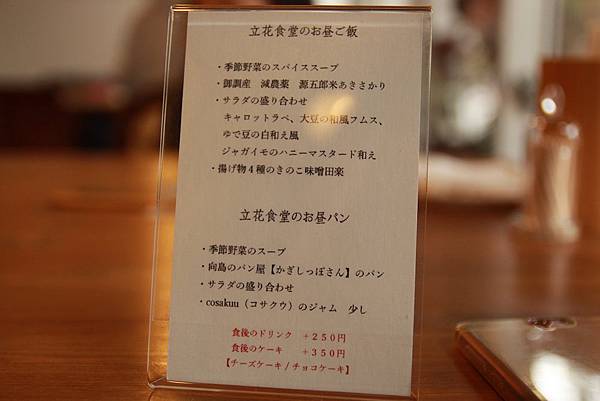 立花食堂のお昼ご飯
・季節野菜のスパイススープ
・御調産　減農薬　源五郎米あきさかり
・サラダの盛り合わせ
キャロットラペ、大豆の和風フムス、
ゆで豆の白和え風
ジャガイモのハニーマスタード和え
・揚げ物４種のきのこ味噌田楽
立花食堂のお昼パン
・季節野菜のスープ
・向島のパン屋【かぎしっぽさん】のパン
・サラダの盛り合わせ
・cosakuu（コサクウ）のジャム　少し
食後のドリンク　＋２５０円
食後のケーキ　＋３５０円
【チーズケーキ / チョコケーキ】